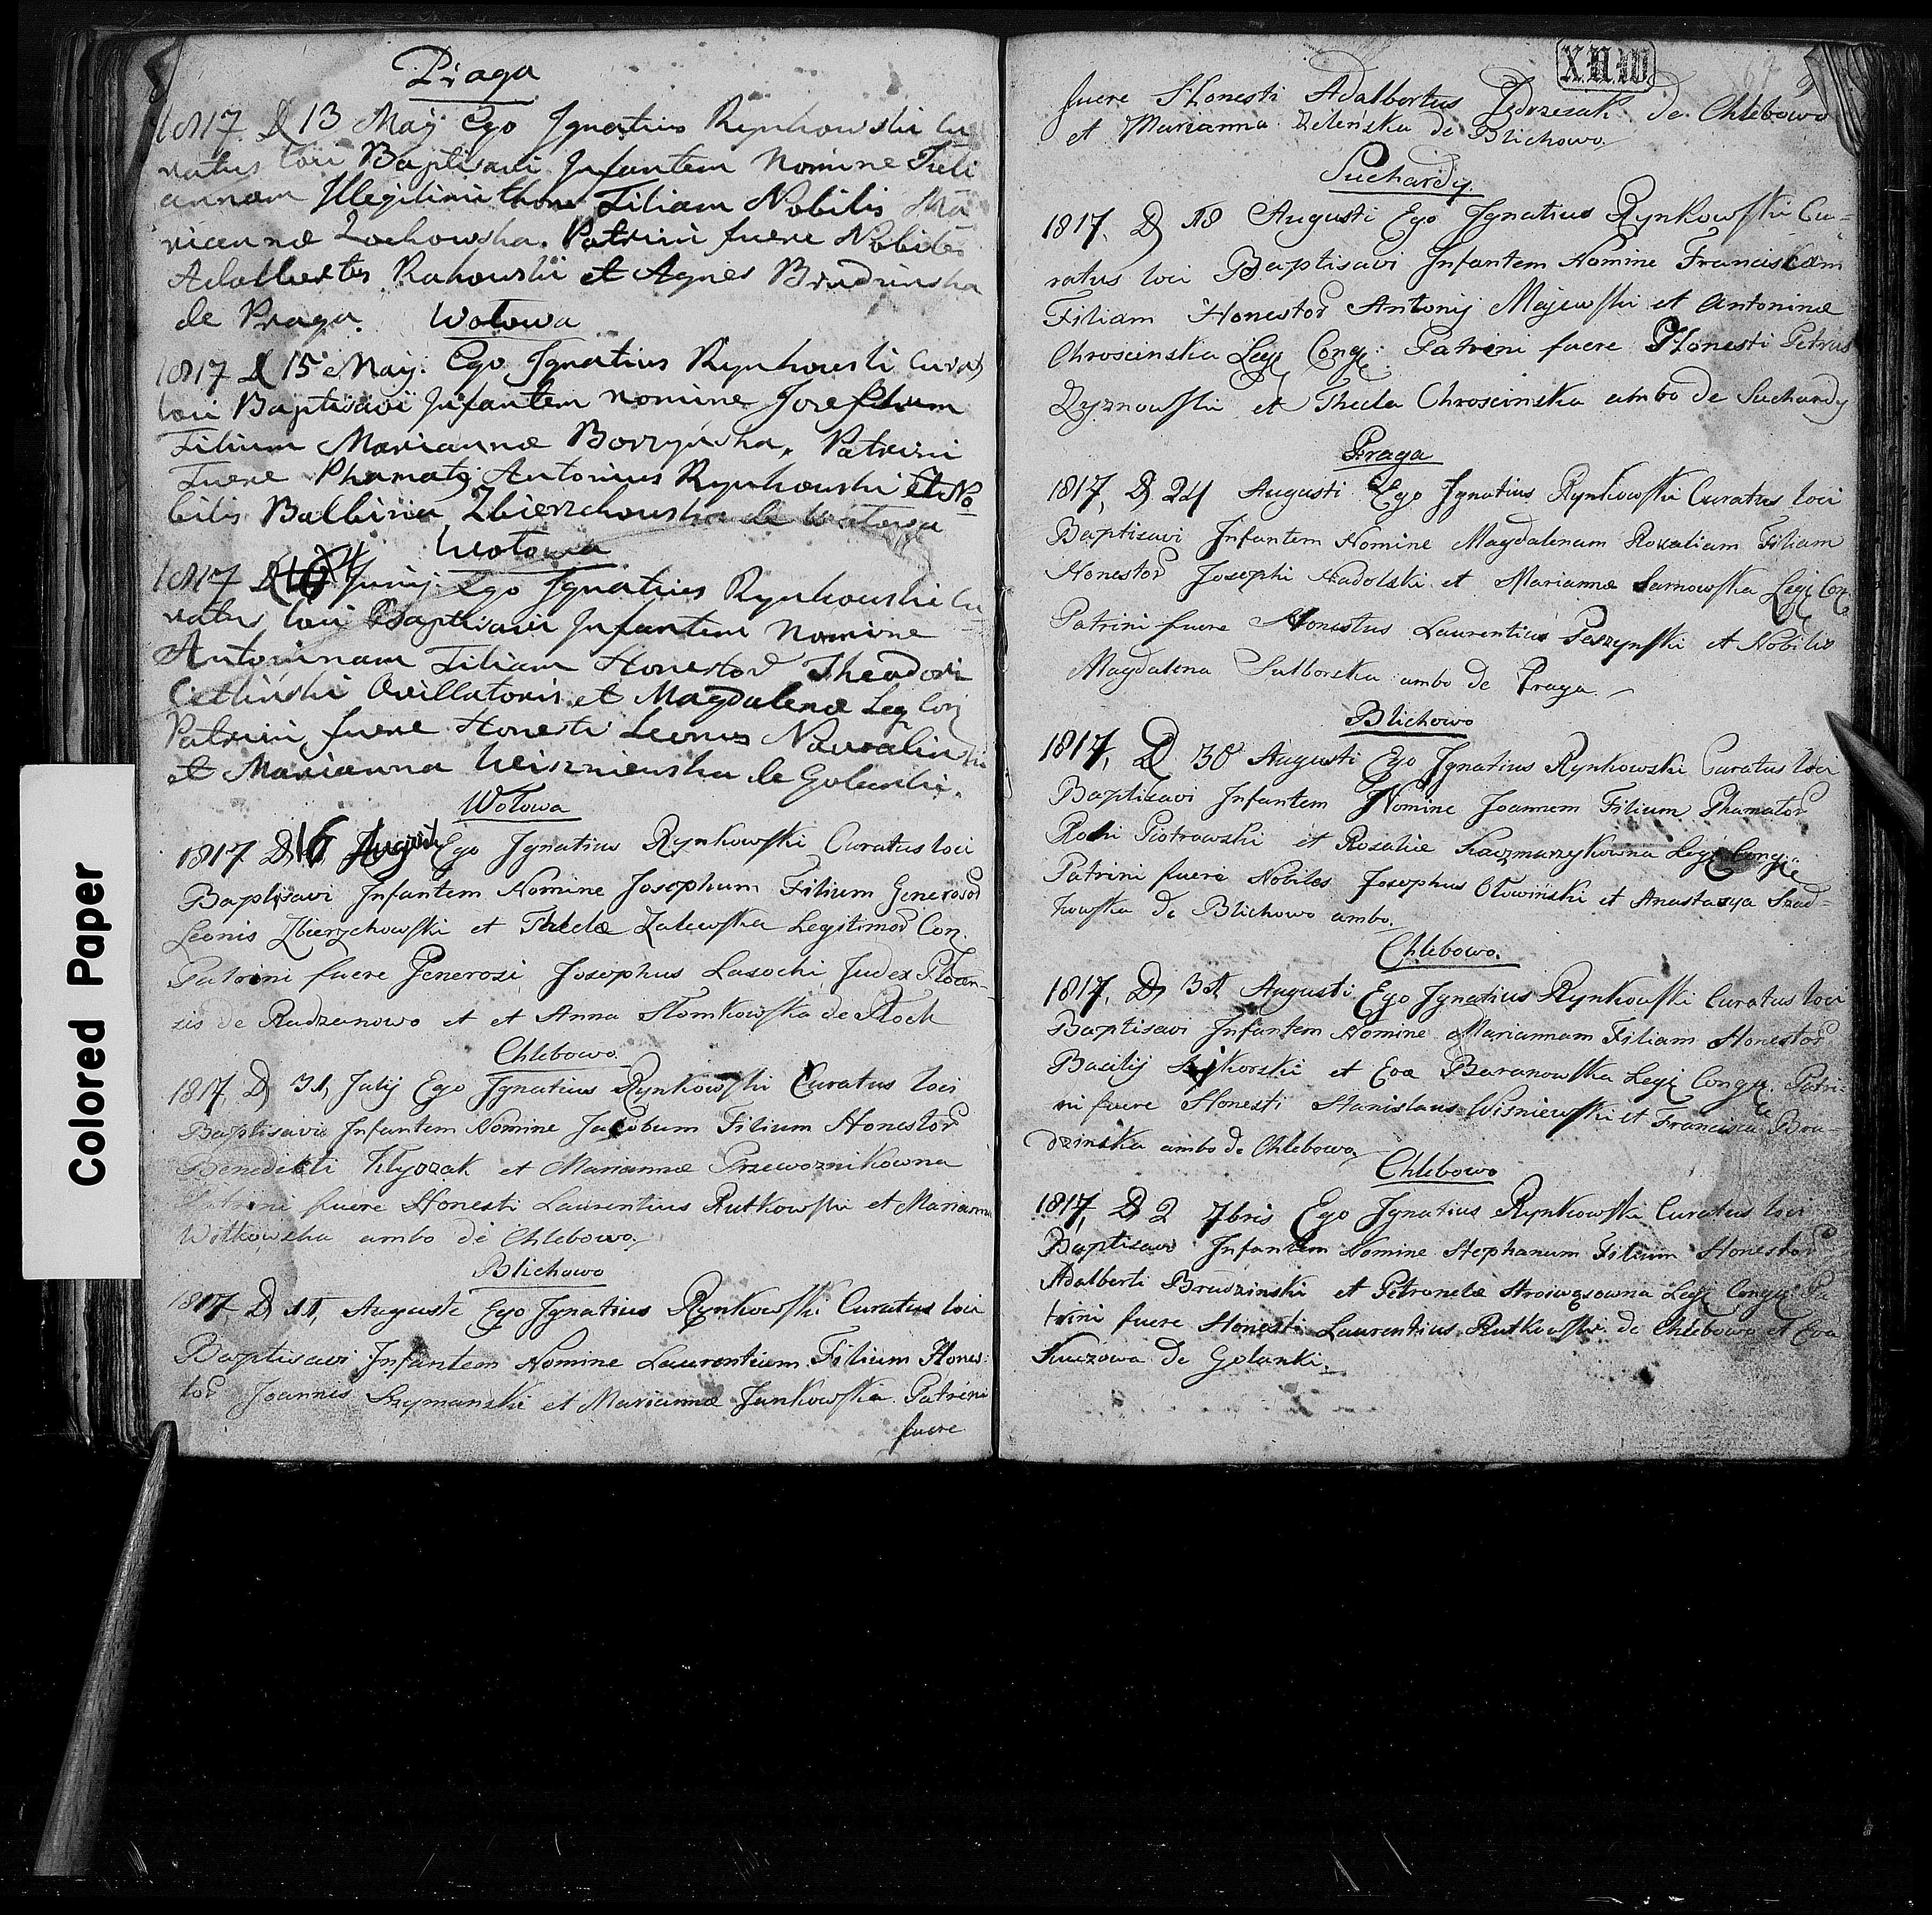 8
Praga
1817 D 13 Maij Ego Ignatius Rynkowski Cu
ratus loci Baptisavi Infantem Nomine Juli
annam Illegitimi thori Filiam Nobilis Ma
riannæ Zochowska. Patrini fuere Nobiles
Adalbertus Rakowski et Agnes Brudzinska
de Praga.
Wotowa
1817 D 15 Maij. Ego Ignatius Rynkowski Curat
loci Baptisavi Infantem nomine Josephum
Filium Mariannæ Borzynska. Patrini
Fuere Phamatg Antonius Rynkowski et No
bilis Balbina Zbierzchowska de Wotowa
Wotowa
1817 D Junij Ego Ignatius Rynkowski Cu
ratus loci Baptisavi Infantem Nomine
Antoninam Filiam Honestor Theodori
Cetlinski Ovillatoris et Magdalenæ Leg Con
Patrini fuere Honesti Leonus Nawalinski
et Marianna Weiszniewska de Golanki.
Wotowa
1817 D 16 Augusti Ego Ignatius Rynkowski Curatus loci
Baptisavi Infantem Nomine Josephum Filium Generosor
Leonis Zbierzchowski et Theclæ Zalewska Legitimor Con.
Patrini fuere Generosi Josephus Lasochi Judex Plocen-
sis de Radzanowo et et Anna Slomkowska de Plock
Chlebowo.
1817, D 31, Julij Ego Ignatius Rynkowski Curatus loci
Baptisavi Infantem Nomine Jacobum Filium Honestor
Benedikti Klyozak et Mariannæ Przewoznikowna
Patrini fuere Honesti Laurentius Rutkowski et Marianna
Witkowska ambo de Chlebowo.
Blichowo
1817, D 11, Auguste Ego Ignatius Rynkowski Curatus loci
Baptisavi Infantem Nomine Laurentium Filium Hones-
tor Joannis Szymanski et Mariannæ Junkowska. Patrini
fuere
XIIW
67
fuere Honesti Adalbertus Jędrzezak de Chlebowo
et Marianna Zeleńska de Blichowo
Suchardy.
1817. D 18 Augusti Ego Ignatius Rynkowski Cu-
ratus loci Baptisavi Infantem Nomine Franciscam
Filiam Honestor Antonij Majewski et Antoninæ
Chroscinska Legi Congi: Patrini fuere Honesti Petrus
Zyznowski et Thecla Chroscinska ambo de Suchardy
Praga
1817, D 24 Augusti Ego Ignatius Rynkowski Curatus loci
Baptisavi Infantem Nomine Magdalenam Rozaliam Filiam
Honestor Josephi Nadolski et Mariannæ Sarnowska Legi Con.
Patrini fuere Honestus Laurentius Paszynski et Nobilis
Magdalena Sulborska ambo de Praga.
Blichowo
1817, D 30 Augusti Ego Ignatius Rynkowski Curatus loci
Baptisavi Infantem Nomine Joannem Filium Phamator
Rochi Piotrowski et Rosaliæ Kaczmarzykowna Legi Congi.
Patrini fuere Nobiles Josephus Olowiński et Anastazya Srad-
kowska de Blichowo ambo.
Chlebowo.
1817, D 31 Augusti Ego Ignatius Rynkowski Curatus loci
Baptisavi Infantem Nomine Mariannam Filiam Honestor
Basilij Sikorski et Evæ Baranowska Legi Congi. Patri-
ni fuere Honesti Stanislaus Wisniewski et Francisca Bru-
dzinska ambo de Chlebowo.
Chlebowo
1817, D 2 7bris Ego Ignatius Rynkowski Curatus loci
Baptisavi Infantem Nomine Stephanum Filium Honestor
Adalberti Brudzinski et Petronelæ Legi Congi. Pa
trini fuere Honesti Laurentius Rutkowski de Chlebowo et Eva
de Golanki.
Colored Paper